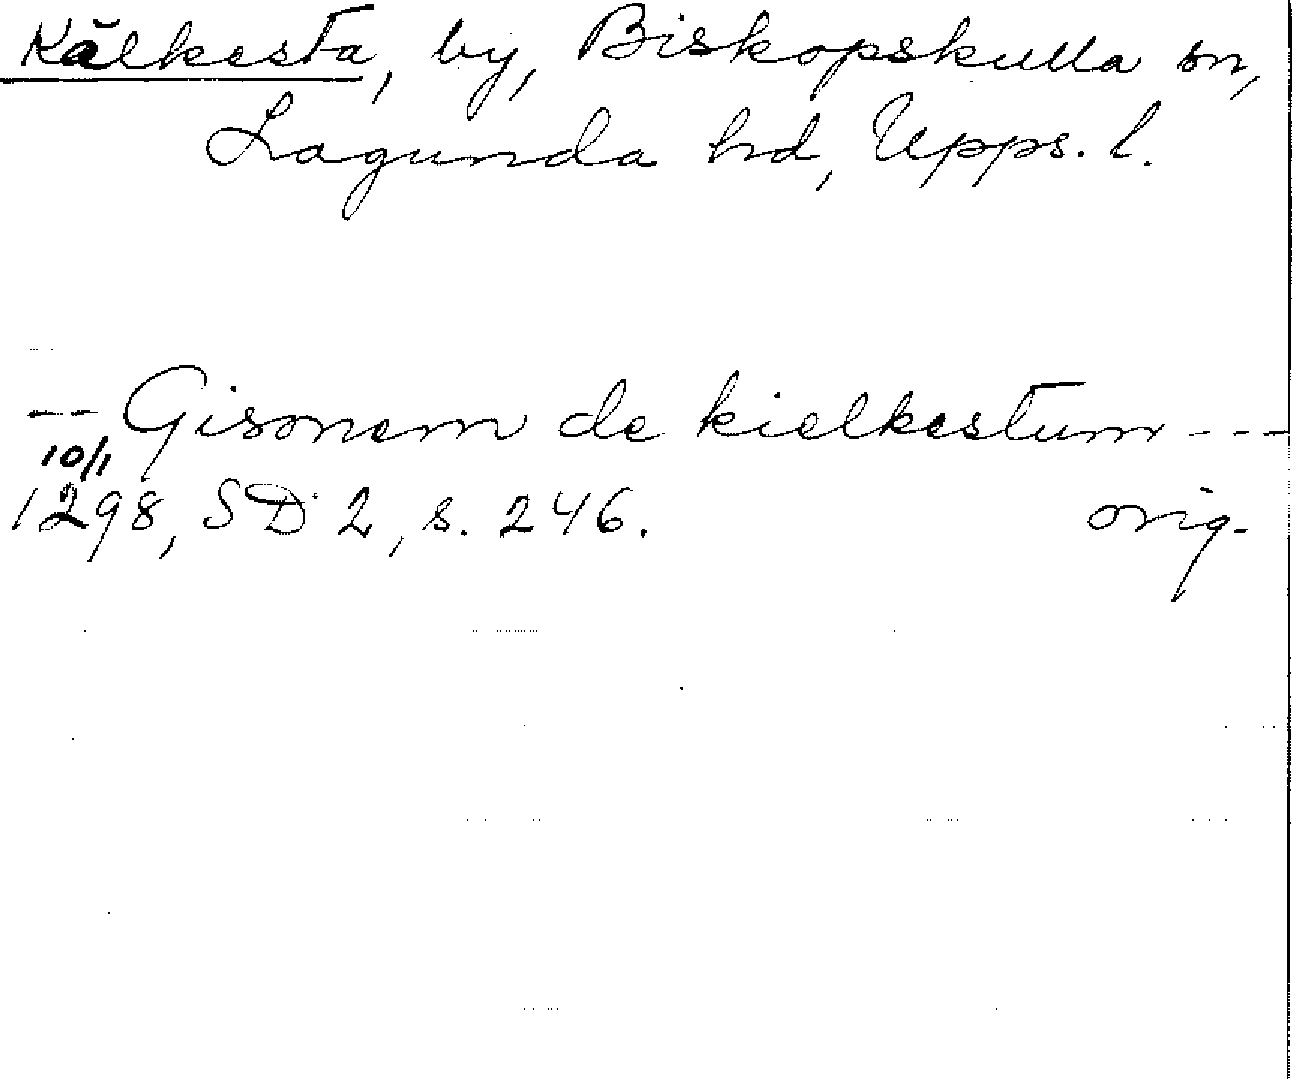 Kälkesta, by, Biskopskulla sn,
Lagunda hd, Upps. l.
-- Gisonem de kielkestum ---
10/1
1298, SD 2, s. 246. orig.